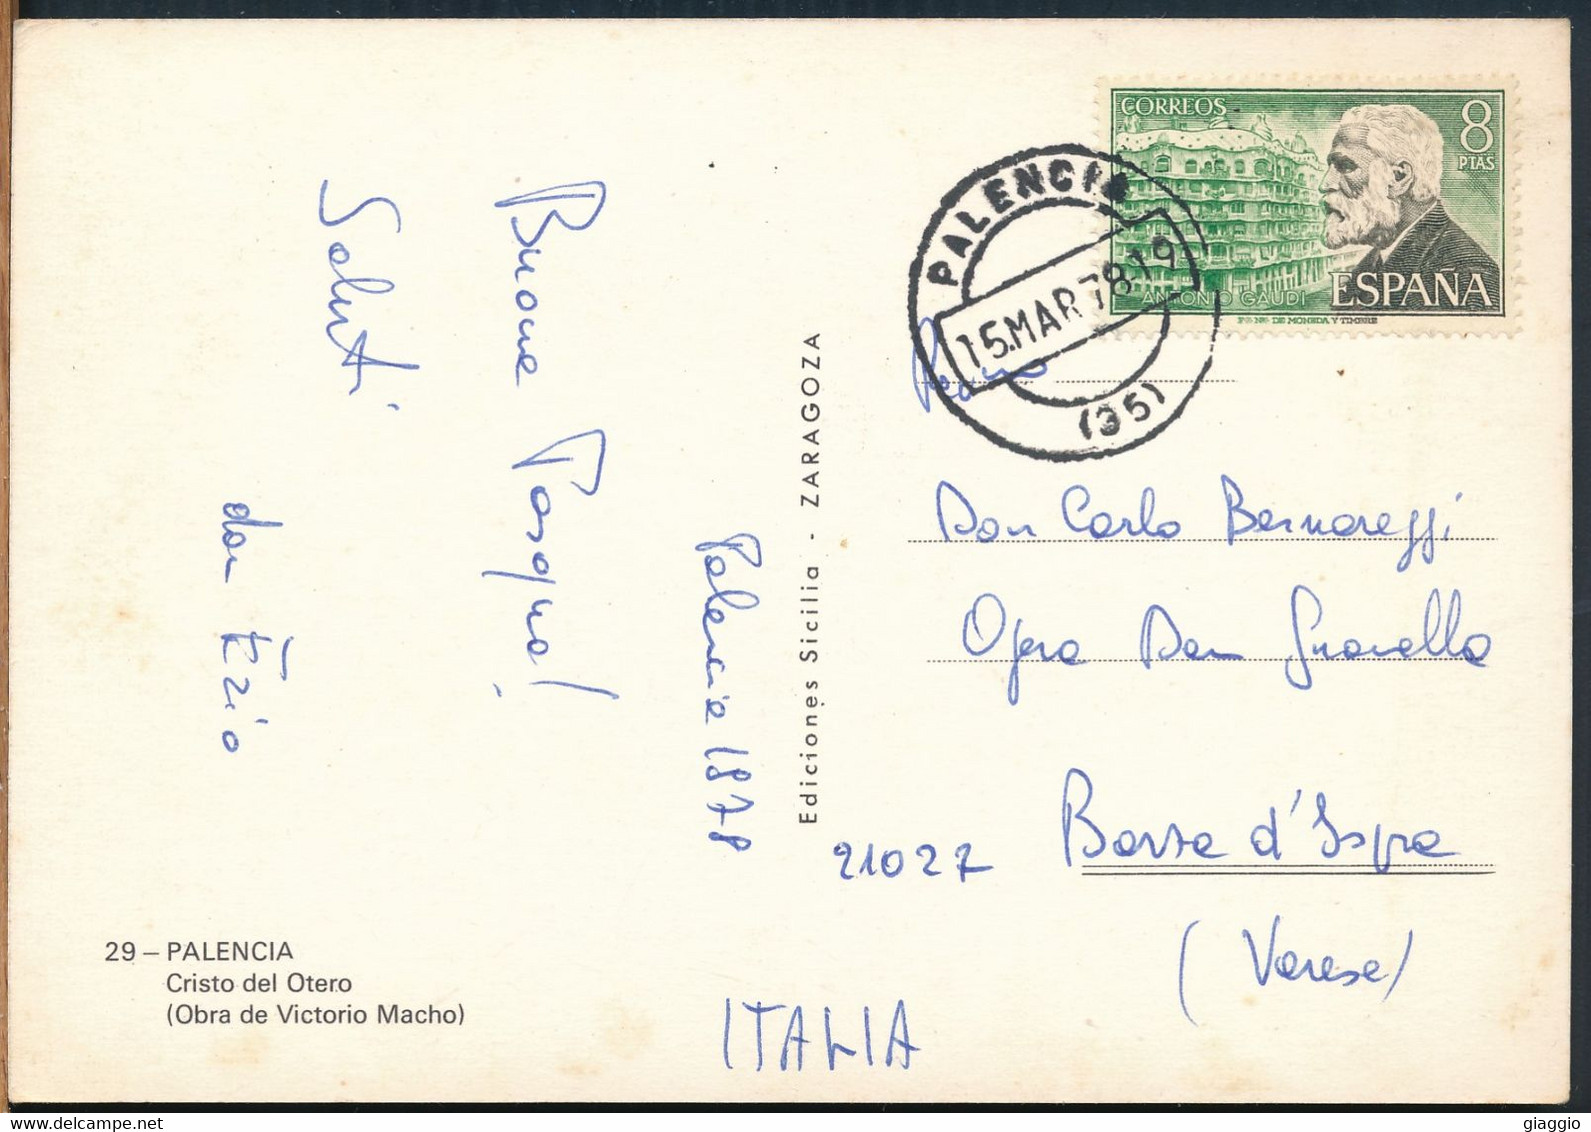 Palencia 1978
Buona Pasqua!
Saluti
don Ezio
29 – PALENCIA
Cristo del Otero
(Obra de Victorio Macho)
Ediciones Sicilia - ZARAGOZA
CORREOS
8
PTAS
ANTONIO GAUDI
ESPAÑA
F.N. DE MONEDA Y TIMBRE
PALENCIA
15.MAR.78.19
(35)
Don Carlo Bernareggi
Opera Don Guanella
21027 Barza d'Ispra
(Varese)
ITALIA
giaggio